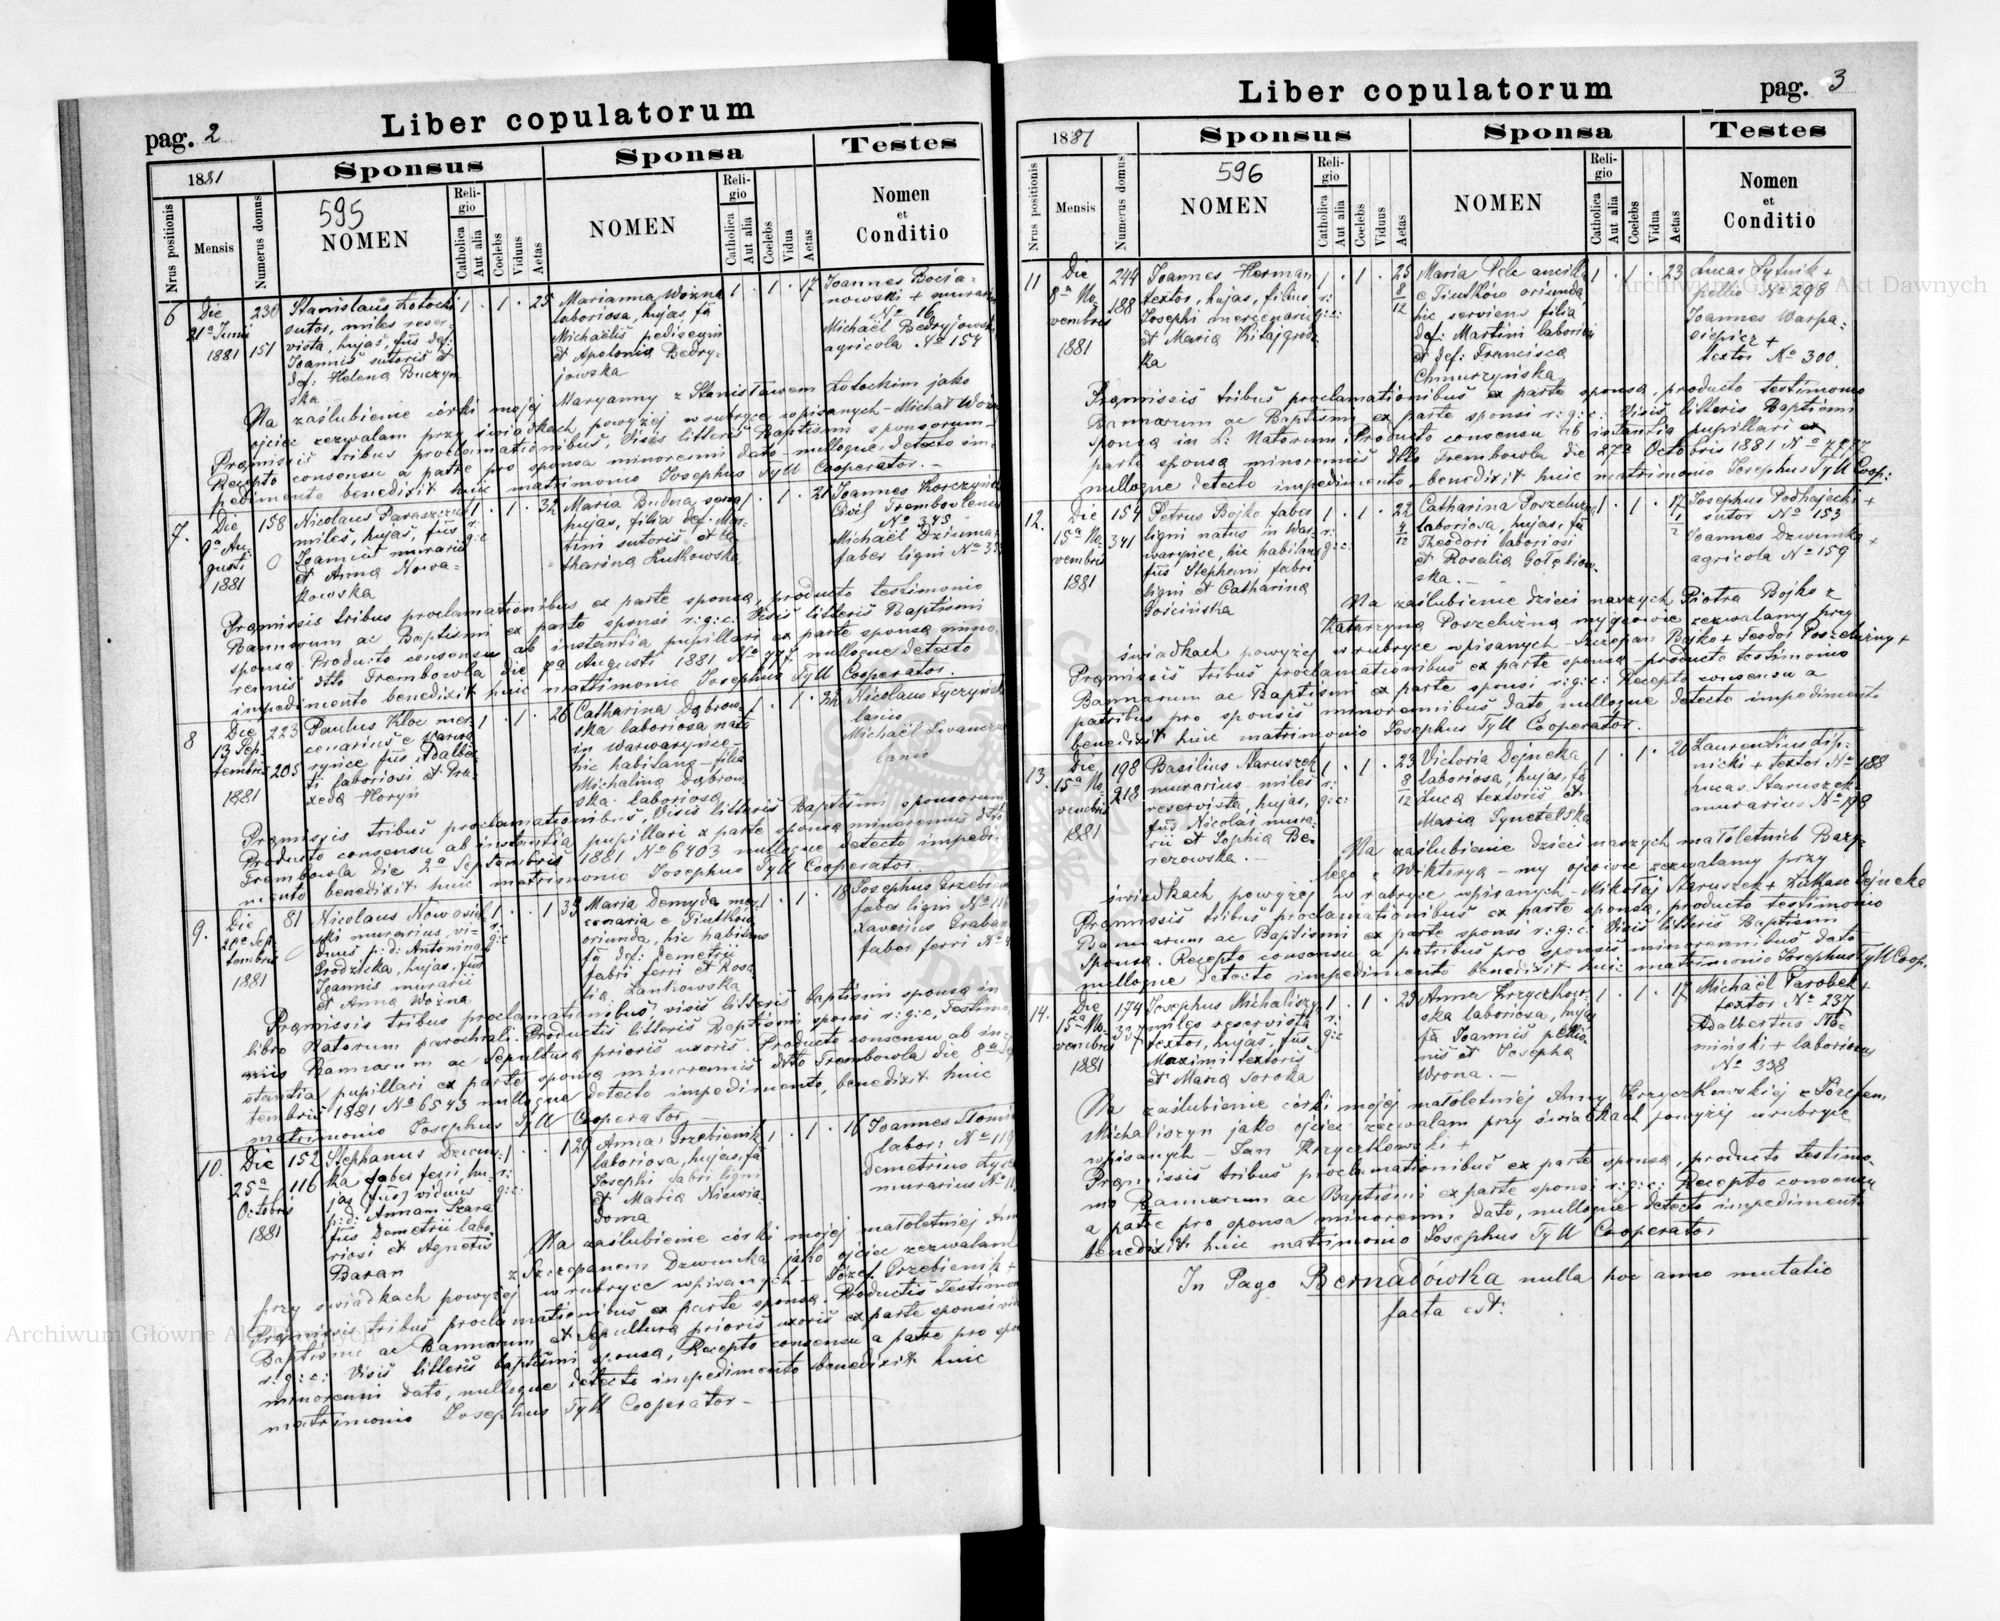 pag. 2
Liber copulatorum
1881
Sponsus
Sponsa
Testes
Nrus positionis
Mensis
Numerus domus
595
NOMEN
Religio
Catholica
Aut alia
Coelebs
Viduus
Aetas
NOMEN
Religio
Catholica
Aut alia
Coelebs
Vidua
Aetas
Nomen
et
Conditio
6
Die
21ª Junii
1881
230
151
Stanislaus Łotocki
sutor, miles reser-
vista, hujas, fus def:
Joannis sutoris et
def: Helena Buczyń
ska
1 . 1 . 25
Marianna Woźna
laboriosa, hujas, fa
Michaëlis pedisequi
et Apolonia Bedry-
jowska
1 . 1 . 17
Joannes Bocia-
nowski + murari
Nº 16
Michaël Bedryjowski
agricola Nº 154
Na zaślubienie córki mojej Maryanny z Stanisławem Łotockim jako
ojciec zezwalam przy świadkach powyżej w rubryce wpisanych – Michał Woźn
Pramissis tribus proclamationibus, Visis litteris Baptismi sponsorum
Recepto consensu a patre pro sponsa minorenni dato – nulloque detecto im-
pedimento benedixit huic matrimonio Josephus Tyll Cooperator. –
7.
Die
9ª Au-
gusti
1881
158
0
Nicolaus Paraszczak
miles, hujas, fus
Joannis murarii
et Anna Nowa-
kowska
1 . 1 . 32
r:
g:c
Maria Budna
hujas, filia def: Mar-
tini sutoris et Ca
tharina Lutkowska
1 . 1 . 21
Joannes Korczyńs
Civis Trembowlensis
Nº 343
Michaël Dziuma
faber ligni Nº 35
Pramissis tribus proclamationibus ex parte sponsa, producto testimonio
Bannorum ac Baptismi ex parte sponsi r:g:c: Visis litteris Baptismi
sponsa. Producto consensu ab instantia pupillari ex parte sponsa mino-
rennis dtto Trembowla die 7ª Augusti 1881 Nº 777 nulloque detecto
impedimento benedixit huic matrimonio Josephus Tyll Cooperator.
8
Die
13 Sep-
tembris
1881
223
205
Paulus Kloc mer-
cenarius e Warwa
rynce fus Adalber-
ti laboriosi et Pra-
xeda Horyń
1 . 1 . 26
Catharina Dąbrow-
ska laboriosa nata
in Warwaryńce –
hic habitans – filia
Michalina Dąbrow-
ska laboriosa
1 . 1 . 32
Nicolaus Tyczyńsk
lanio
Michaël Iwanczu
lanio
Pramissis tribus proclamationibus, Visis litteris Baptismi sponsorum
Producto consensu ab instantia pupillari ex parte sponsa minorennis dtto
Trembowla die 2ª Septembris 1881 Nº 6403 nulloque detecto impedi-
mento benedixit huic matrimonio Josephus Tyll Cooperator
9.
Die
20ª Sep
tembris
1881
81
0
Nicolaus Nowosiel
ski murarius, vi-
duus p:d: Antonina
Grodzicka, hujas, fus
Joannis murarii
et Anna Woźna
1 . . 1 39
r:
g:c
Maria Demyda mer-
cenaria e Tiutków
oriunda, hic habitans
fa def: Demetrii
fabri ferri et Rosa
lia Lankowska
1 . 1 . 18
Josephus Grzebieni
faber ligni Nº 116
Xaverius Graban
faber ferri Nº
Pramissis tribus proclamationibus, visis litteris baptismi sponsa in
libro Natorum parochiali. Productis litteris Baptismi sponsi r:g:c, Testimo-
niis Bannorum ac Sepultura prioris uxoris. Producto consensu ab in-
stantia pupillari ex parte sponsa minorennis dtto Trembowla die 8ª Sep
tembris 1881 Nº 6543 nulloque detecto impedimento, benedixit huic
matrimonio Josephus Tyll Cooperator. –
10.
Die
25ª
Octobris
1881
152
116
Stephanus Dziuni-
ka faber ferri, hu-
jas (fus) viduus
p:d: Annam Szara
fus Demetrii labo
riosi et Agnetis
Baran
1 . . 1 29
r:
g:c:
Anna Grzebienik
laboriosa, hujas, fa
Josephi fabri ligni
et Maria Niewia-
doma
1 . 1 . 16
Joannes Słomi
labor: Nº 119
Demetrius Łys
murarius Nº 11
Na zaślubienie córki mojej małoletniej Ann
z Szczepanem Dzwunka jako ojciec zezwalam
przy świadkach powyżej w rubryce wpisanych – Józef Grzebienik +
Pramissis tribus proclamationibus ex parte sponsa. Productis Testimon
Baptismi ac Bannorum et Sepultura prioris uxoris ex parte sponsi vid
r:g:c: Visis litteris baptismi sponsa, Recepto consensu a patre pro spo
minorenni dato, nulloque detecto impedimento benedixit huic
matrimonio Josephus Tyll Cooperator –
Liber copulatorum
pag. 3
1881
Sponsus
Sponsa
Testes
Nrus positionis
Mensis
Numerus domus
596
NOMEN
Religio
Catholica
Aut alia
Coelebs
Viduus
Aetas
NOMEN
Religio
Catholica
Aut alia
Coelebs
Vidua
Aetas
Nomen
et
Conditio
11
Die
8ª No
vembris
1881
244
188
Joannes Herman
textor, hujas, filius
Josephi mercenarii
et Maria Kitajgrod-
ka
1 . 1 . 25
8
12
r:
g:c:
Maria Pele ancilla
e Tiutków oriunda,
hic serviens filia
def: Martini laboriosi
et def: Francisca
Chmurzyńska
1 . 1 . 23
Lucas Sytnik +
pellio Nº 298
Joannes Warpa-
siewicz +
testor Nº 300.
Pramissis tribus proclamationibus ex parte sponsa, producto testimonio
Bannorum ac Baptismi ex parte sponsi r:g:c: Visis litteris Baptismi
sponsa in L: Natorum. Producto consensu ab instantia pupillari ex
parte sponsa minorennis dtto Trembowla die 27ª Octobris 1881 Nº 7877
nulloque detecto impedimento – benedixit huic matrimonio Josephus Tyll Coop:
12.
Die
15ª No
vembris
1881
154
341
Petrus Bojko faber
ligni natus in War-
warynce, hic habitans
fus Stephani fabri
ligni et Catharina
Gościńska
1 . 1 . 22
4
12
r:
g:c:
Catharina Poszelużna
laboriosa, hujas, fa
Theodori laboriosi
et Rosalia Gołębiow-
ska. –
1 . 1 . 17
1
2
Josephus Podhajecki +
sutor Nº 153
Joannes Dzwunka +
agricola Nº 159
Na zaślubienie dzieci naszych Piotra Bojko z
Katarzyną Poszelużną my ojcowie zezwalamy przy
świadkach powyżej w rubryce wpisanych – Szczepan Bojko + Teodor Poszelużny +
Pramissis tribus proclamationibus ex parte sponsa – producto testimonio
Bannorum ac Baptismi ex parte sponsi r:g:c: Recepto consensu a
patribus pro sponsis minorennibus dato nulloque detecto impedimento
benedixit huic matrimonio Josephus Tyll Cooperator.
13.
Die
15ª No
vembris
1881
198
218
Basilius Staruszek
murarius – miles
reservista, hujas,
fus Nicolai mura-
rii et Sophia Be-
rezowska. –
1 . 1 . 23
8
12
g:c:
Victoria Dejneka
laboriosa, hujas, fa
Luca textoris et
Maria Synczelska
1 . 1 . 20
Laurentius Lip-
nicki + textor Nº 188
Lucas Staruszek
murarius Nº 198
Na zaślubienie dzieci naszych małoletnich Bazy-
lego z Wiktoryą – my ojcowie zezwalamy przy
świadkach powyżej w rubryce wpisanych – Mikołaj Staruszek + Łukasz Dejneka
Pramissis tribus proclamationibus ex parte sponsa, producto testimonio
Bannorum ac Baptismi ex parte sponsi r:g:c: Visis litteris Baptismi
sponsa. Recepto consensu a patribus pro sponsis minorennibus dato
nulloque detecto impedimento benedixit huic matrimonio Josephus Tyll Coop.
14.
Die
15ª No-
vembris
1881
174
337
Josephus Michaliszyn
miles reservista
textor, hujas, fus
Maximi textoris
et Maria Soroka
1 . 1 . 25
r:
g:c
Anna Krzyczkow-
ska laboriosa, hujas
fa Joannis pellio-
nis et Josepha
Wrona. –
1 . 1 . 17
Michaël Parobek +
textor Nº 237
Adalbertus Sło-
miński + laboriosus
Nº 338
Na zaślubienie córki mojej małoletniej Anny Krzyczkowskiej z Józefem
Michaliszyn jako ojciec zezwalam przy świadkach powyżej w rubryce
wpisanych – Jan Krzyczkowski +
Pramissis tribus proclamationibus ex parte sponsa, producto testimo-
nio Bannorum ac Baptismi ex parte sponsi r:g:c: Recepto consensu
a patre pro sponsa minorenni dato, nulloque detecto impedimento
benedixit huic matrimonio Josephus Tyll Cooperator
In Pago Bernadówka nulla hoc anno mutatio
facta est.
Archiwum Główne Akt Dawnych
Archiwum Główne Akt Dawnych